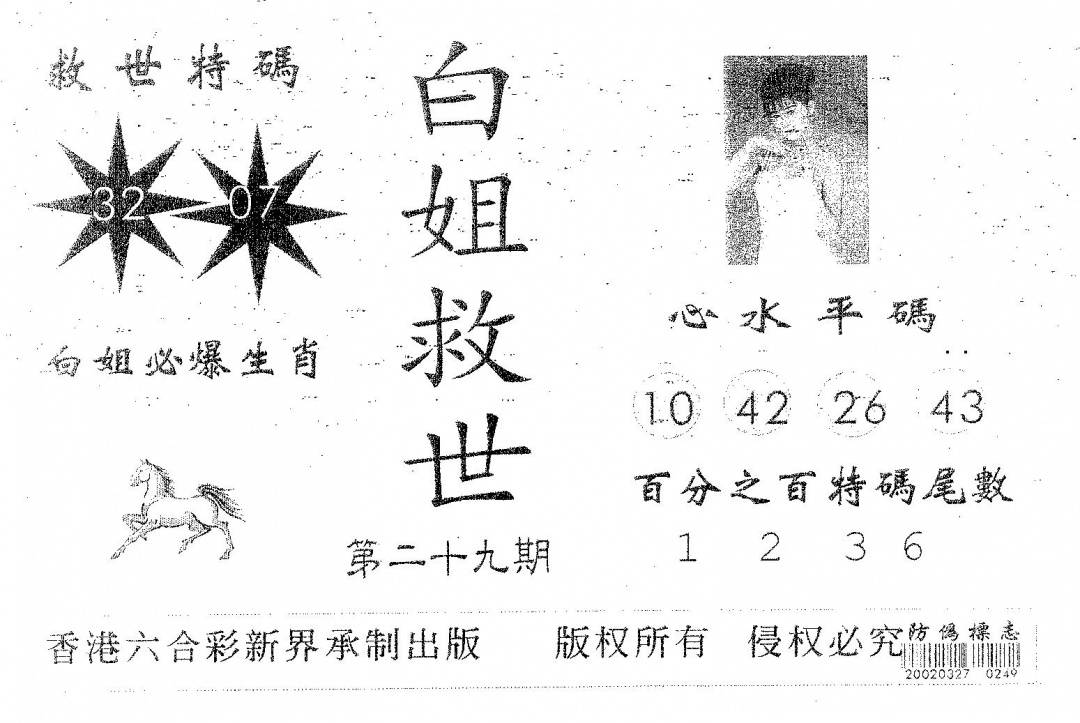 救世特碼
32 07
白姐必爆生肖
白姐救世
第二十九期
心水平碼
10 42 26 43
百分之百特碼尾數
1 2 3 6
香港六合彩新界承制出版 版权所有 侵权必究
防偽標志
20020327 0249